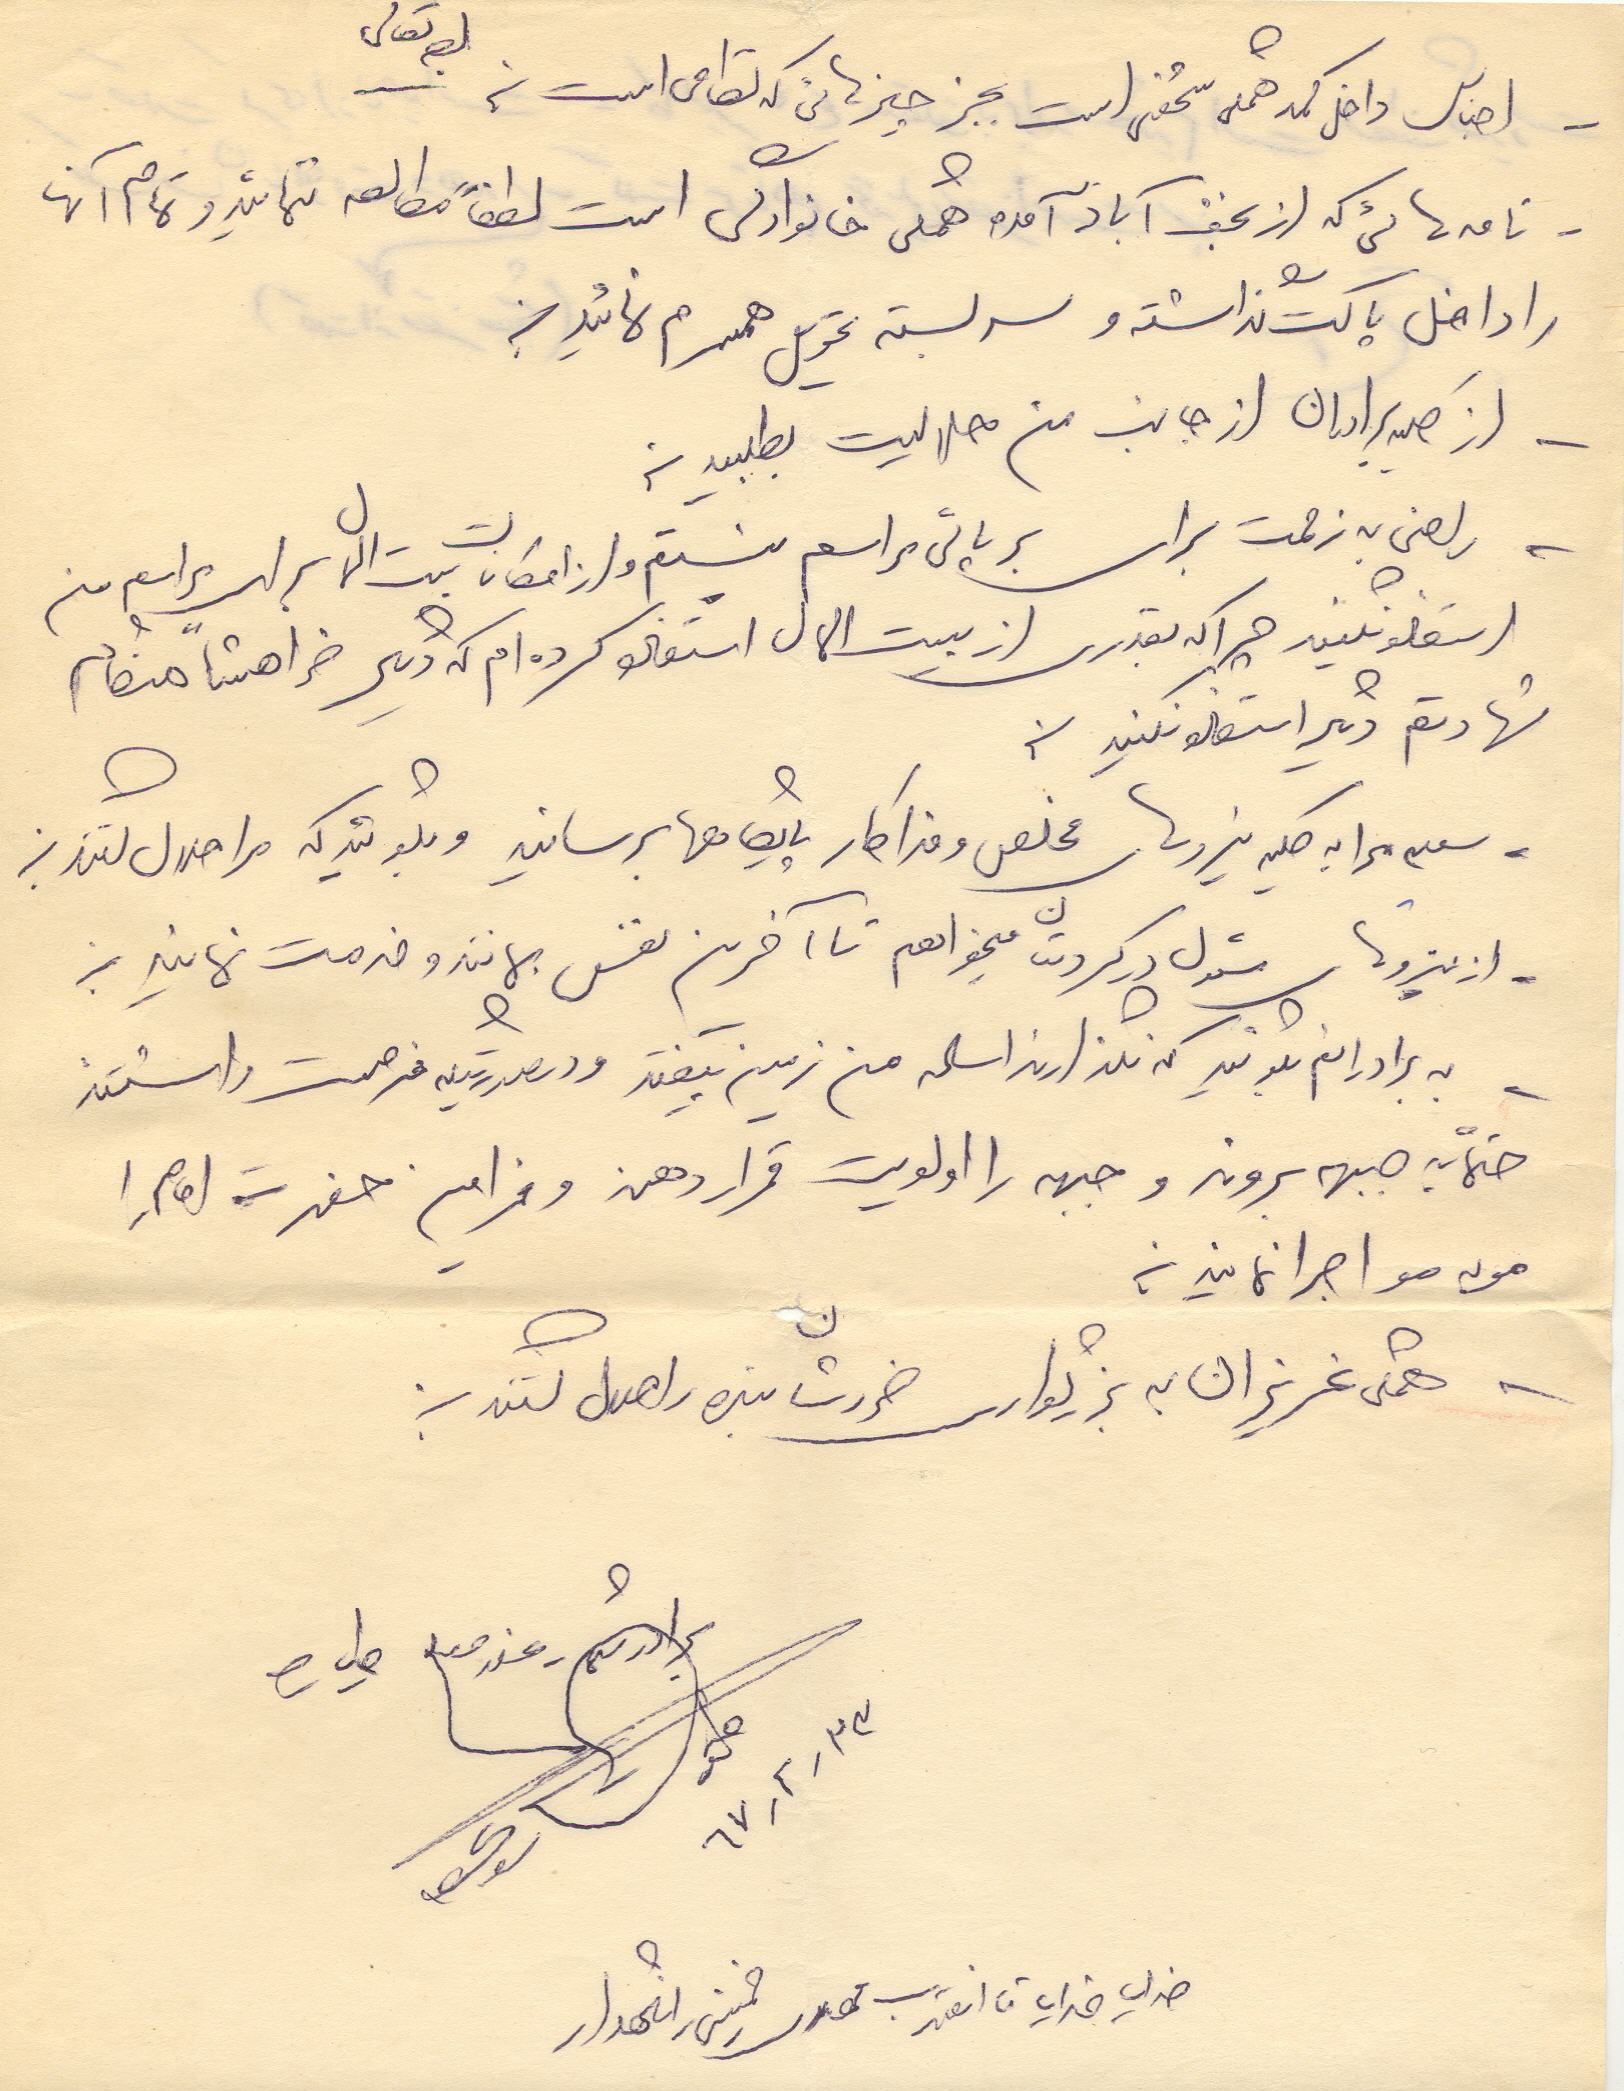 بسمه تعالی
- اجناس داخل کمد همگی شخصی است بجز چیزهائی که نظامی است .
- نامه هائی که از نجف آباد آمده همگی خانوادگی است لطفاً مطالعه ننمائید و تمام آنها
را داخل پاکت گذاشته و سربسته تحویل همسرم نمائید .
- از کلیه برادران از جانب من حلالیت بطلبید .
- راضی به زحمت برای برپائی مراسم نیستم و از امکانات بیت المال برای مراسم من
استفاده نکنید چرا که بقدری از بیت المال استفاده کرده ام که دیگر خواهشاً هنگام
شهادتم دیگر استفاده نکنید .
- سلام مرا به کلیه نیروهای مخلص و فداکار پایگاهها برسانید و بگوئید که مرا حلال کنند .
- از نیروهای مشغول در گردان میخواهم تا آخرین نفس بمانند و خدمت نمایند .
- به برادرانم بگوئید که نگذارند اسلحه من زمین بیفتد و در صورتیکه فرصت داشتند
حتماً به جبهه بروند و جبهه را اولویت قرار دهند و فرامین حضرت امام را
مو به مو اجرا نمایند .
- همگی عزیزان به بزرگواری خودشان بنده را حلال کنند .
برادر شما
۶۷/۲/۲۳
خدایا خدایا تا انقلاب مهدی خمینی را نگهدار